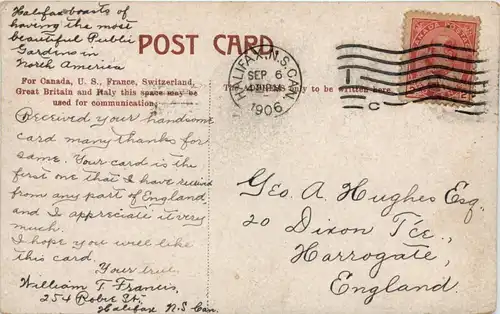 Halifax boasts of
having the most
beautiful Public
Gardens in
North America
POST CARD
For Canada, U. S., France, Switzerland,
Great Britain and Italy this space may be
used for communication.
only to be written here.
HALIFAX, N.S. CAN.
SEP 6
1906
Received your handsome
card many thanks for
same. Your card is the
first one that I have received
from any part of England
and I appreciate it very
much.
I hope you will like
this card.
Your true,
William T. Francis,
254 Robie St,
Halifax N.S Can.
Geo. A. Hughes Esq.
20 Dixon T'ce.,
Harrogate,
England.